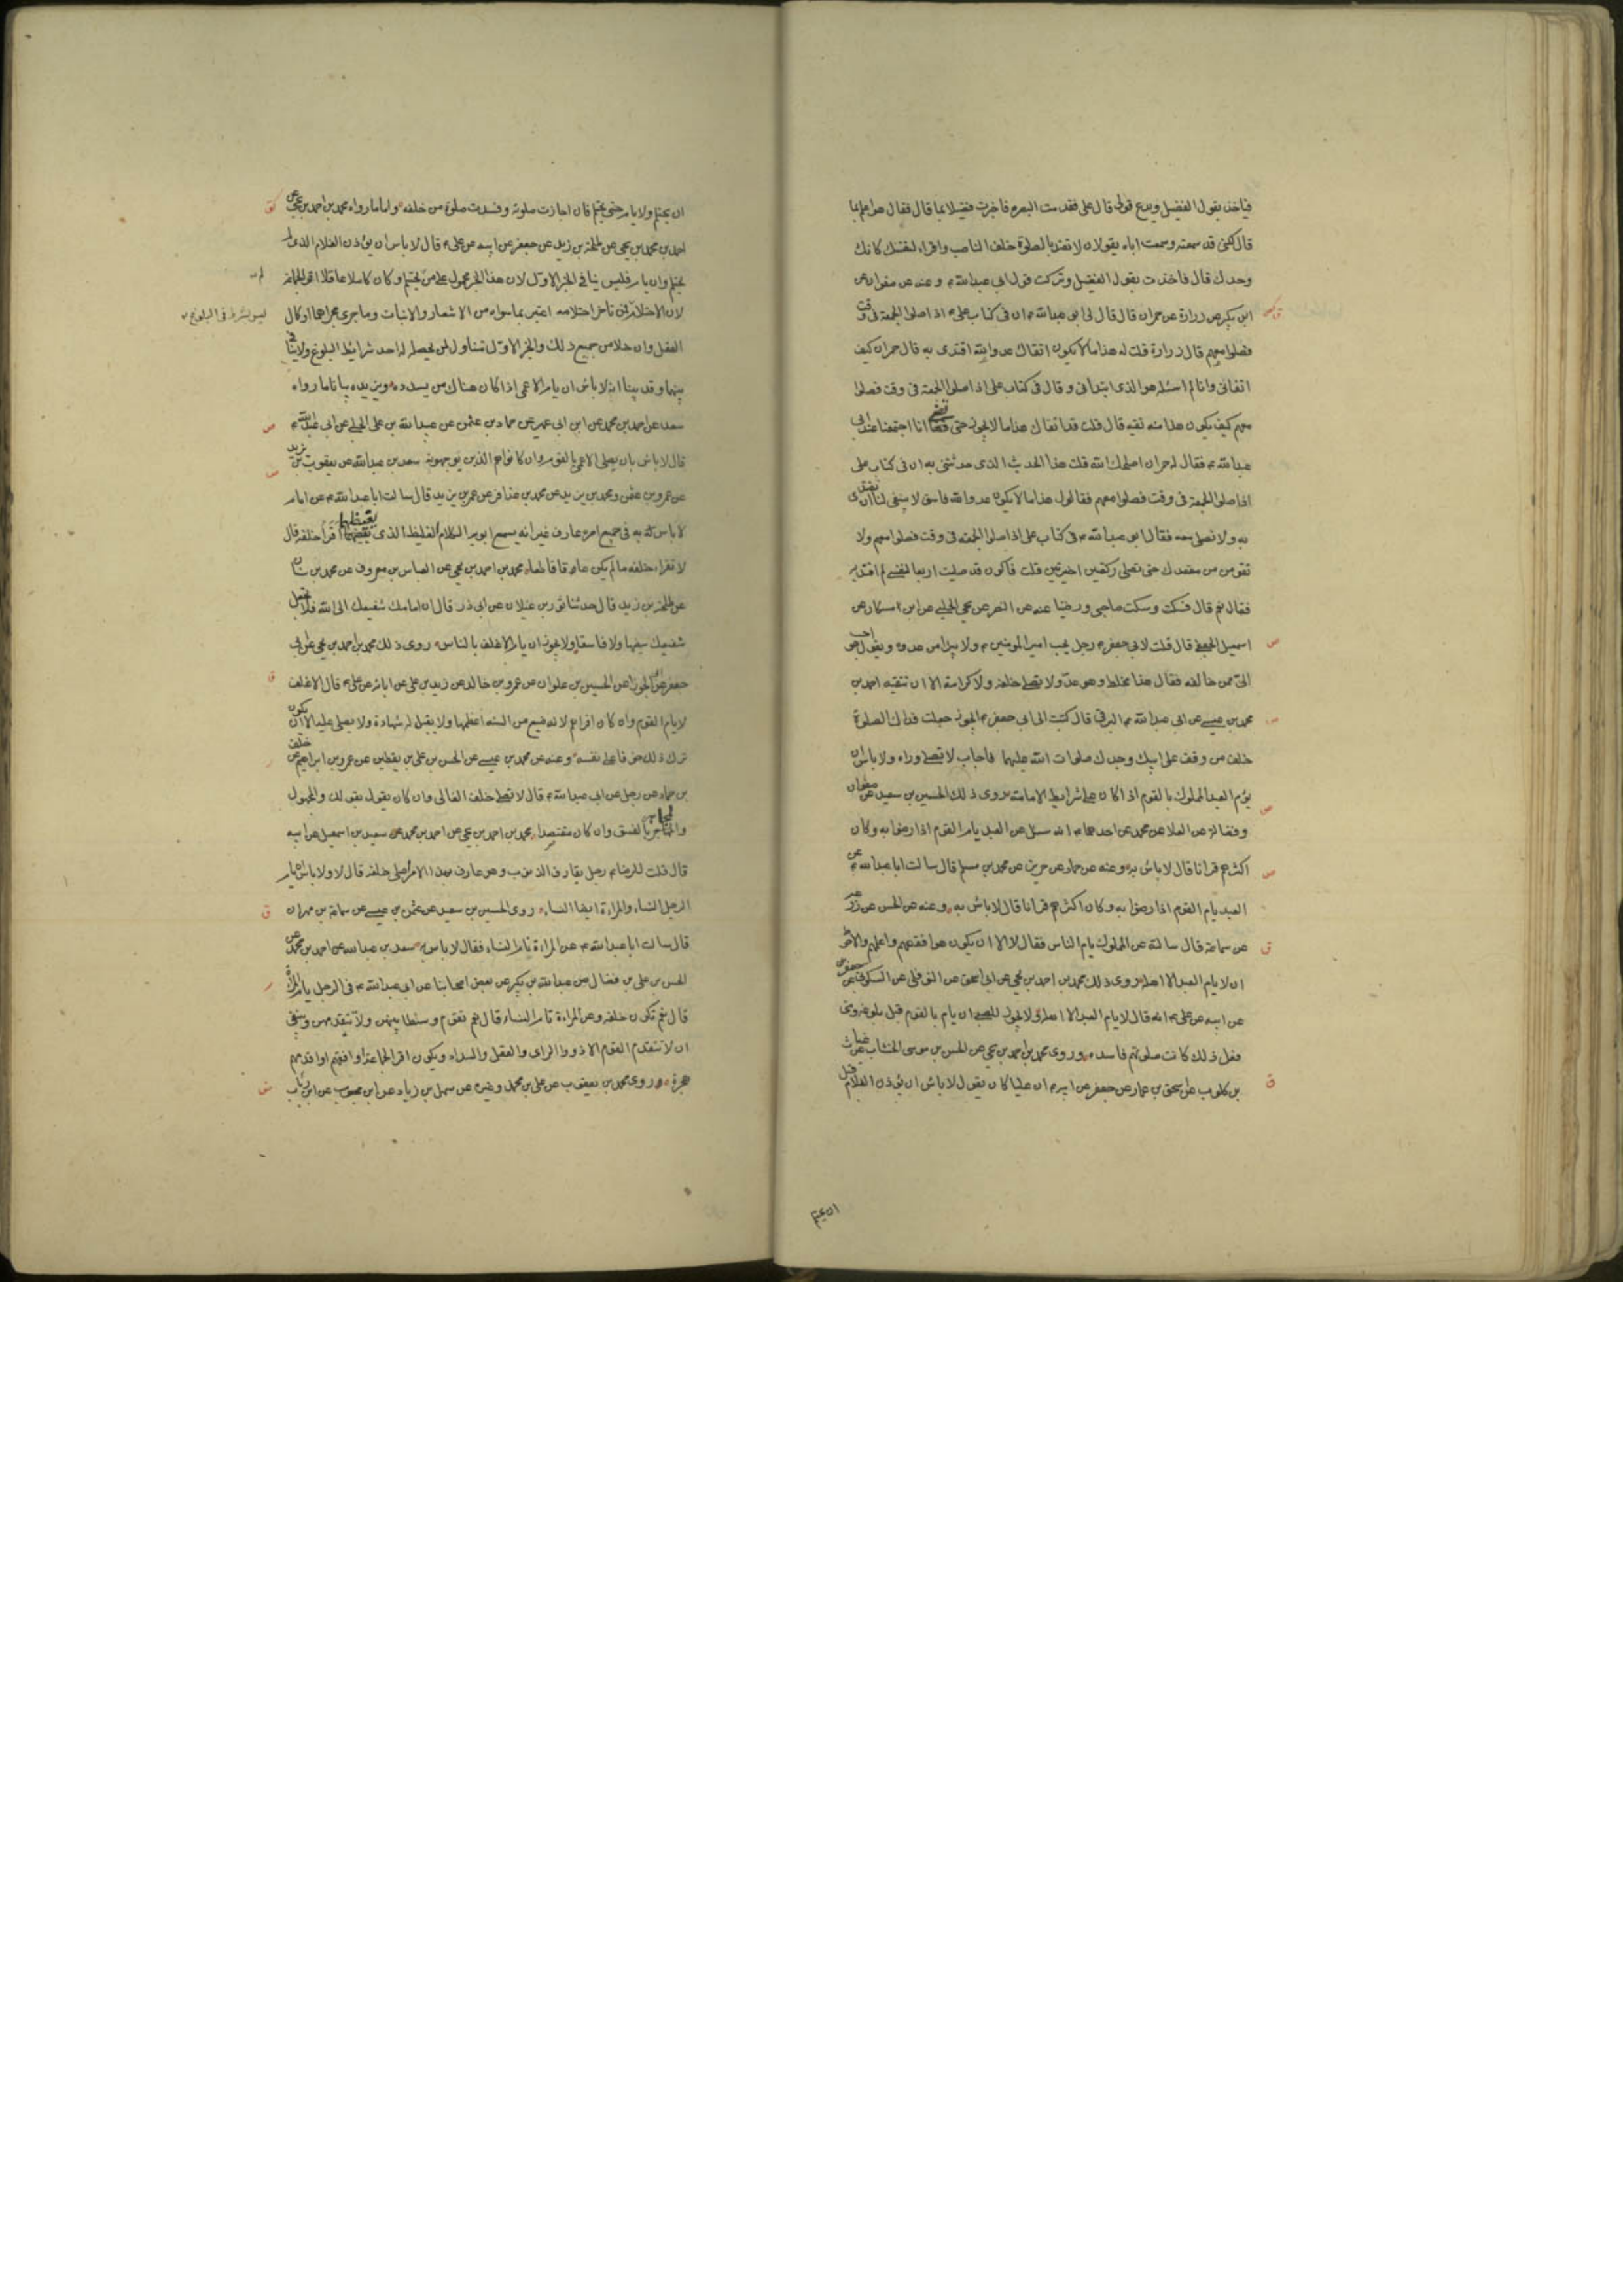 فيأخذ بقول الفضيل ويدع قولي قال علي فقدمت البصرة فاخبرت فضيلا بما قال فقال هو اعلم بما
قال لكني قد سمعته وسمعت اباه يقولان لا تعتد بالصلوة خلف الناصب واقراء لنفسك كانك
وحدك قال فاخذت بقول الفضيل وتركت قول ابي عبدالله ع وعنه عن صفوان عن
ابن بكير عن زرارة عن حمران قال قال لي ابو عبدالله ع ان في كتاب علي ع اذا صلوا الجمعة في وقت
فصلوا معهم قال زرارة قلت له هذا مالا يكون اتقاك عدو الله اقتدى به قال حمران كيف
اتقاني وانا لم اسئله هو الذي ابتدأني وقال في كتاب علي اذا صلوا الجمعة في وقت فصلوا
معهم كيف يكون هذا منه تقيه قال قلت قد اتقاك هذا مالا يجوز حتى قضى انا اجتمعنا عند ابي
عبدالله ع فقال له حمران اصلحك الله قلت هذا الحديث الذي حدثتني به ان في كتاب علي
اذا صلوا الجمعة في وقت فصلوا معهم فقال هذا مالا يكون عدو الله فاسق لا ينبغي لنا ان نقتدي
به ولا نصلي معه فقال ابو عبدالله ع في كتاب علي اذا صلوا الجمعة في وقت فصلوا معهم ولا
تقومن من مقعدك حتى تصلي ركعتين اخيرتين قلت فاكون قد صليت اربعا لنفسي لم اقتد به
فقال نعم قال فسكت وسكت صاحبي ورضينا عنه عن النضر عن يحيى الحلبي عن ابن مسكان عن
اسمعيل الجعفي قال قلت لابي جعفر ع رجل يحب امير المومنين ع ولا يبرا من عدوه ويقول هو احب
الي ممن خالفه فقال هذا مخلط وهو عدو لا تصل خلفه ولا كرامة الا ان تتقيه احمد بن
محمد بن عيسى عن ابي عبدالله البرقي قال كتبت الى ابي جعفر ع ايجوز جعلت فداك الصلوة
خلف من وقف على ابيك وجدك صلوات الله عليهما فاجاب لا تصل وراه ولا باس ان
يؤم العبد المملوك بالقوم اذا كان على شرايط الامامة روى ذلك الحسين بن سعيد عن صفوان
وفضالة عن العلا عن محمد عن احدهما ع انه سئل عن العبد يام القوم اذا رضوا به وكان
اكثرهم قرانا قال لا باس به وعنه عن حماد عن حريز عن محمد بن مسلم قال سالت ابا عبدالله ع عن
العبد يام القوم اذا رضوا به وكان اكثرهم قرانا قال لا باس به وعنه عن الحسن عن زرعة
عن سماعة قال سالته عن المملوك يام الناس فقال لا الا ان يكون هو افقههم واعلمهم والاحوط
ان لا يام العبد الا اهله روى ذلك محمد بن احمد بن يحيى عن ابي اسحق عن النوفلي عن السكوني عن جعفر
عن ابيه عن علي ع انه قال لا يام العبد الا اهله ولا يجوز للصبي ان يام بالقوم قبل بلوغه ومتى
فعل ذلك كانت صلوتهم فاسده وروى محمد بن احمد بن يحيى عن الحسن بن موسى الخشاب عن غياث
بن كلوب عن اسحق بن عمار عن جعفر عن ابيه ع ان عليا كان يقول لا باس ان يؤذن الغلام قبل
ان يحتلم
ان يحتلم ولا يام حتى يحتلم فان ام جازت صلوته وفسدت صلوة من خلفه واما ما رواه محمد بن احمد بن يحيى عن
احمد بن محمد بن يحيى عن طلحة بن زيد عن جعفر عن ابيه عن علي ع قال لا باس ان يؤذن الغلام الذي لم
يحتلم وان يام فليس ينافي الخبر الاول لان هذا الخبر محمول على من لم يحتلم وكان كاملا عاقلا اقرأ الجماعة
لان الاحتلام ليس بشرط في البلوغ لان من تأخر احتلامه اعتبر بما سواه من الاشعار والانبات وما جرى مجراهما او كمال
العقل وان خلا من جميع ذلك والخبر الاول متناول لمن لم يحصل له احد شرايط البلوغ ولا تنافي
بينهما وقد بينا انه لا باس ان يام الاعمى اذا كان هناك من يسدده ويزيده بيانا ما رواه
سعد عن احمد بن محمد عن ابن ابي عمير عن حماد بن عثمن عن عبيدالله بن علي الحلبي عن ابي عبدالله ع
قال لا باس بان يصلي الاعمى بالقوم وان كانوا هم الذين يوجهونه سعد بن عبدالله عن يعقوب بن يزيد
عن عمرو بن عثمن ومحمد بن يزيد عن محمد بن عذافر عن عمر بن يزيد قال سالت ابا عبدالله ع عن امام
لا باس به في جميع امره عارف غير انه يسمع ابويه الكلام الغليظ الذي يغيظهما اقرأ خلفه قال
لا تقراء خلفه ما لم يكن عاقا قاطعا محمد بن احمد بن يحيى عن العباس بن معروف عن محمد بن سنان
عن طلحة بن زيد قال حدثنا ثور بن غيلان عن ابي ذر قال ان امامك شفيعك الى الله فلا تجعل
شفيعك سفيها ولا فاسقا ولا يجوز ان يام الاغلف بالناس روى ذلك محمد بن احمد بن يحيى عن ابي
جعفر عن ابي الجوزا عن الحسين بن علوان عن عمرو بن خالد عن زيد بن علي عن ابائه عن علي ع قال الاغلف
لا يام القوم وان كان اقرأهم لانه ضيع من السنة اعظمها ولا يقبل له شهادة ولا يصلى عليه الا ان يكون
ترك ذلك خوفا على نفسه وعنه عن محمد بن عيسى عن الحسن بن علي بن يقطين عن عمرو بن ابراهيم عن خلف
بن حماد عن رجل عن ابي عبدالله ع قال لا تصل خلف الغالي وان كان يقول بقولك والمجهول
والمجاهر بالفسق وان كان مقتصدا محمد بن احمد بن يحيى عن احمد بن محمد عن سعيد بن اسمعيل عن ابيه
قال قلت للرضا ع رجل يقارف الذنوب وهو عارف بهذا الامر اصلي خلفه قال لا ولا باس ان يام
الرجل النساء والمراءة ايضا النساء روى الحسين بن سعيد عن عثمن بن عيسى عن سماعة بن مهران
قال سالت ابا عبدالله ع عن المراءة تام النساء فقال لا باس به سعد بن عبدالله عن احمد بن محمد عن
الحسن بن علي بن فضال عن عبدالله بن بكير عن بعض اصحابنا عن ابي عبدالله ع في الرجل يام المراة
قال نعم تكون خلفه وعن المراءة تام النساء قال نعم تقوم وسطا بينهن ولا تتقدمهن وينبغي
ان لا يتقدم القوم الا ذووا الراى والعقل والسداد ويكون اقرأ الجماعة او افقههم او اقدمهم
هجرة روى محمد بن يعقوب عن علي بن محمد وغيره عن سهل بن زياد عن ابن محبوب عن ابن رئاب
ليس بشرط في البلوغ